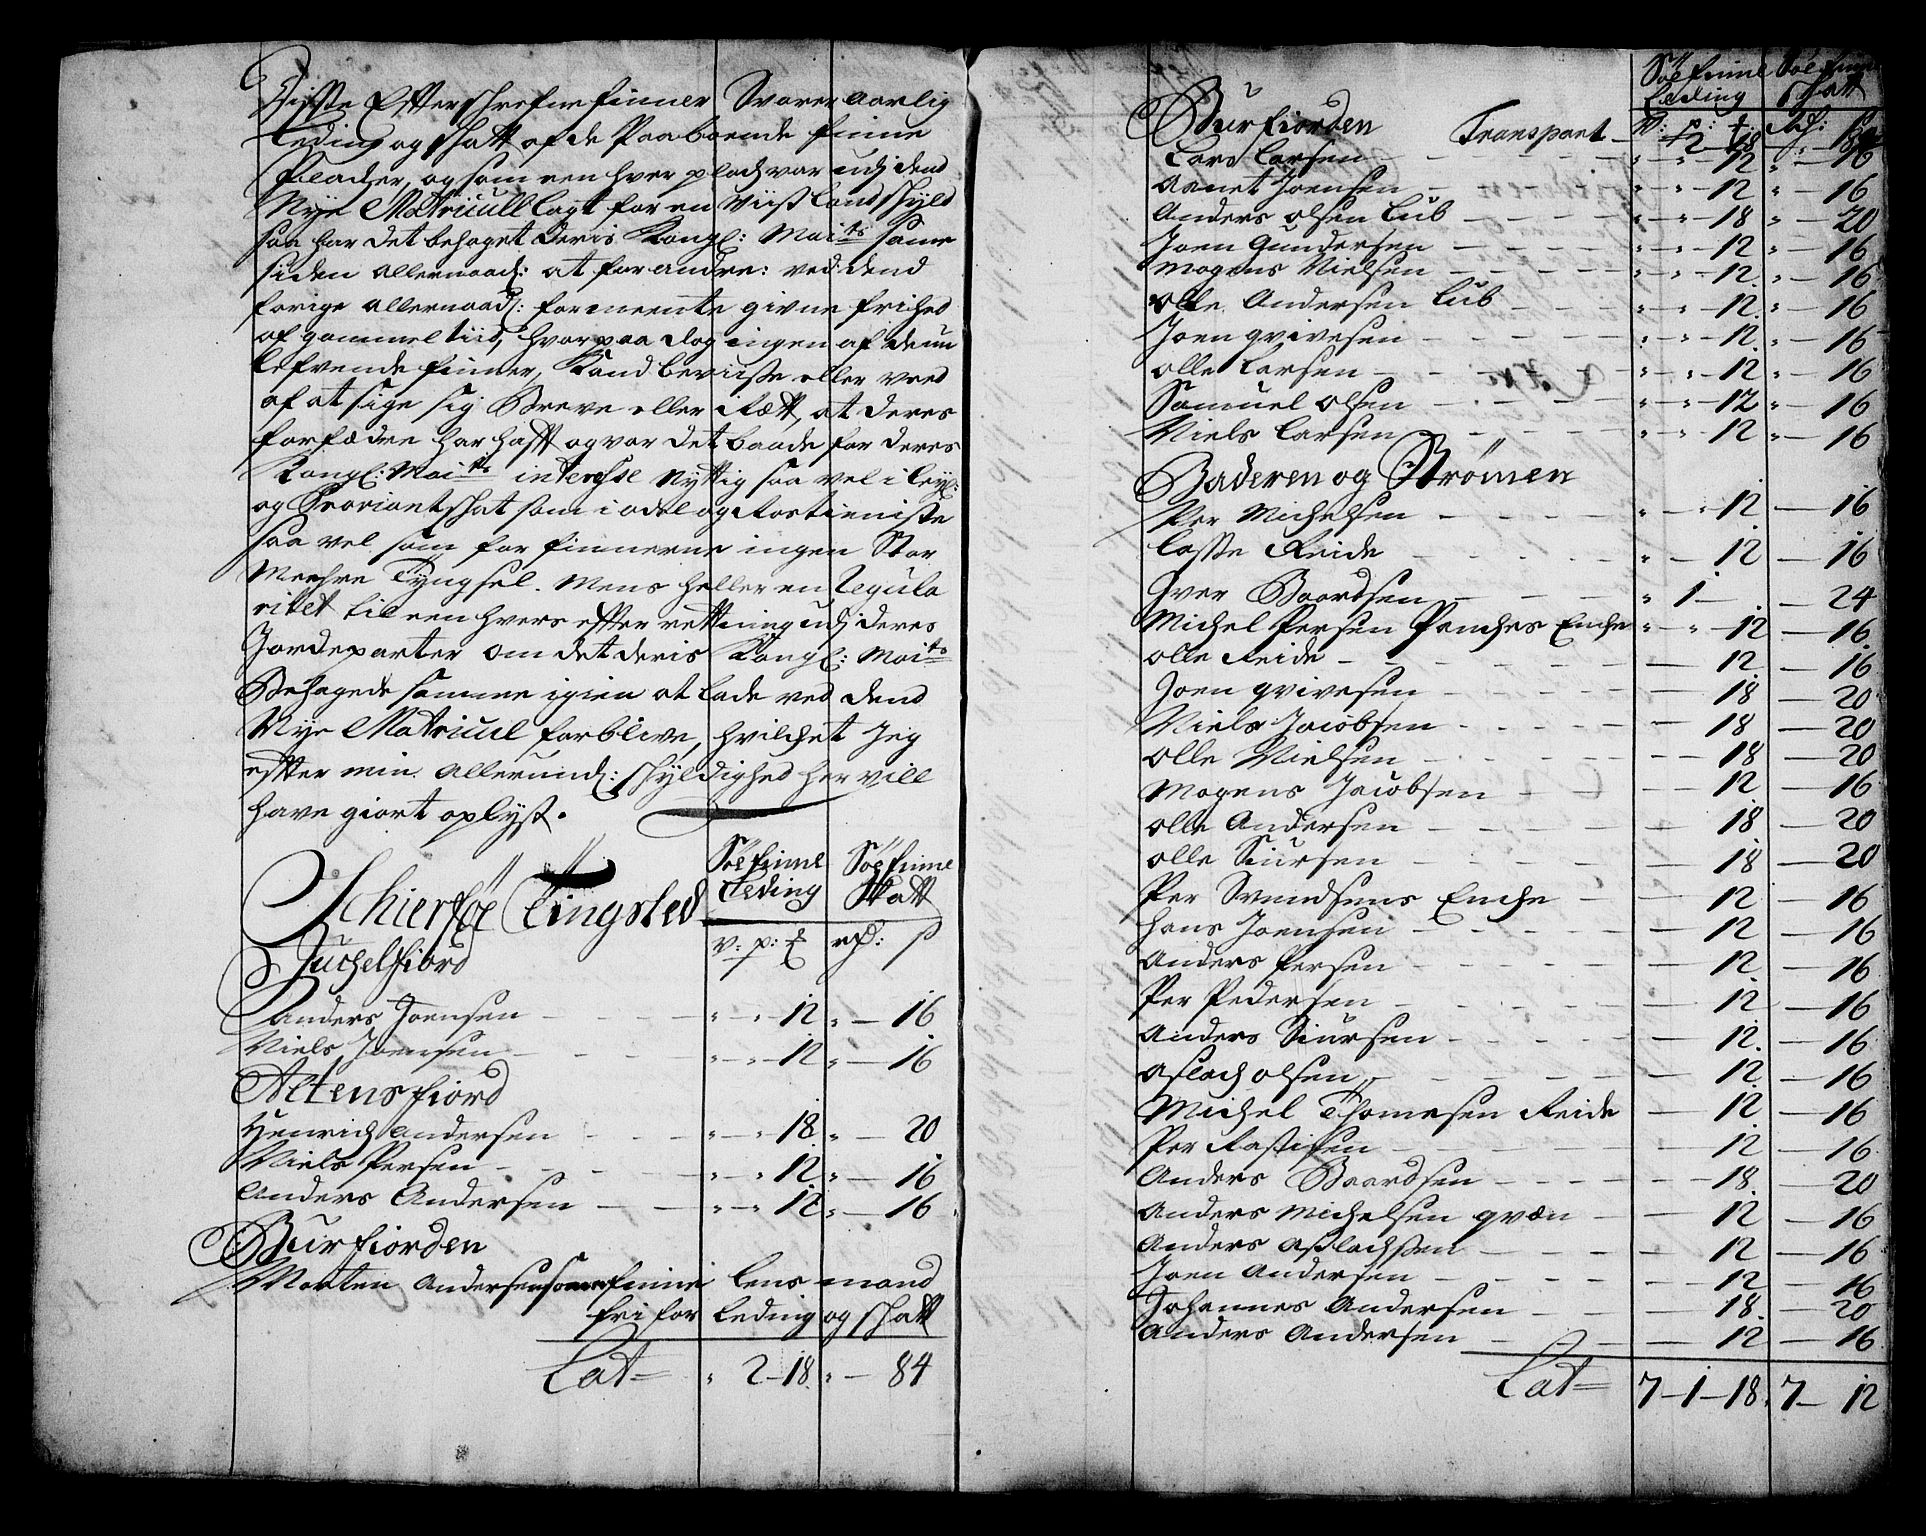 Disse Efterschrefne finner Svarer aarlig
Leding og schatt af de Paaboende finne
Pladtzer, og som een hver plads var udj dend
Nÿe Matricull lagt for en viisz Landschÿld
saa har det behaget deris Kongl: Maits samme
siden allernaad: at forandre: ved dend
forige allernaad: formeente givne frihed
af gammel tiid, hvorpaa dog ingen af de nu
lefvende finner, Kand beviisse eller veed
af at sige sig Breve eller Rætt, at deres
forfædre har hafft og var det baade for deres
Kongl: Maits interesse Nyttig saa vel i leÿl:
og Proviantschat som i odel og Rostieniste
saa vel som for finnerne ingen Stor
Meehre Tyngsel. Mens heller en Regula
ritet til een hvers efter rettning udj deres
Jordeparter om det deris Kongl: Maits
Behagede samme igien at lade ved dend
Nÿe Matricul forblive, hvilchet Jeg
efter min allerund: schÿldighed her vill
have giort oplÿst.
Schierføe Tingsted Søe finne Leding Søe finne Skatt
v: p: ℔ rd: s
Juchelfiord
Anders Joensen - " - " - 12 " - 16
Niels Joensen - " - " - 12 " - 16
Altensfiord
Henrich Andersen - " - " - 18 " - 20
Niels Persen - " - " - 12 " - 16
Anders Andersen - " - " - 12 " - 16
Burfiorden
Morten Andersen som finne lens mand
fri for leding og schatt
Lat= " 2 - 18 " - 84
Søe finne Leding Søe finne Schatt
Burfiorden Transport - v: p: ℔ Rd: s
2 - 18 " - 84
Lars Larsen - " - " - 12 " - 16
Aanet Joensen - " - " - 12 " - 16
Anders Olsen Lub - " - " - 18 " - 20
Joen Gundersen - " - " - 12 " - 16
Mogens Nielsen - " - " - 12 " - 16
Olle Andersen Lub - " - " - 12 " - 16
Joen grivesen - " - " - 12 " - 16
Olle Larsen - " - " - 12 " - 16
Samuel Olsen - " - " - 12 " - 16
Niels Larsen - " - " - 12 " - 16
Baderen og Strømen
Per Michelsen - " - " 12 - 16
Lasse Reide - " - 12 - 16
Iver Baardsen - " 1 - - 24
Michel Persen Panches Enche " - " - 12 - 16
Olle Reide - 12 - 16
Joen grivesen - 18 - 20
Niels Jacobsen - 18 - 20
Olle Nielsen - 18 - 20
Mogens Jacobsen - 12 - 16
Olle Andersen - 18 - 20
Olle Siursen - 18 - 20
Per Svendsens Enche - 12 - 16
Hans Joensen - 12 - 16
Anders Persen - 12 - 16
Per Pedersen - 12 - 16
Anders Siursen - 12 - 16
Aslach Olsen - 12 - 16
Michel Thomesen Reide - 12 - 16
Per Rastisen - 12 - 16
Anders Baardsen - 18 - 20
Anders Michelsen qvæn - 12 - 16
Anders Aslachsen - 12 - 16
Joen Andersen - 12 - 16
Johannes Andersen - 18 - 20
Anders Andersen - 12 - 16
Lat= 7 - 1 - 18 7 - 12